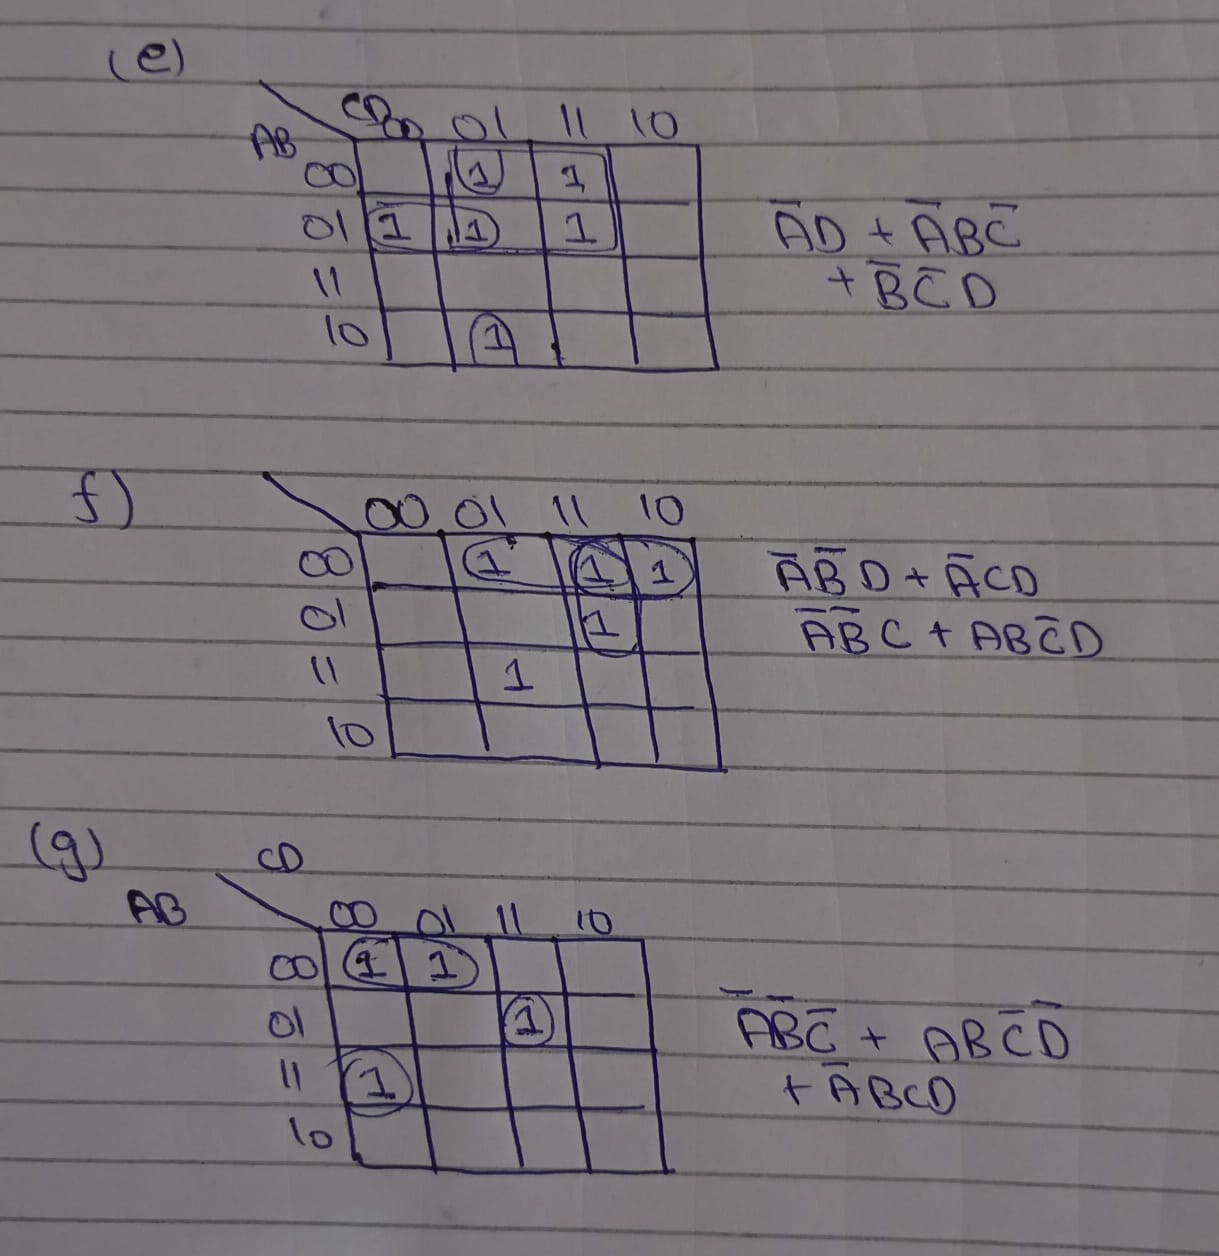 (e)
CD 00 01 11 10
AB
00 1 1
01 1 1 1
11
10 1
A̅D + A̅BC̅
+ B̅C̅D
f)
00 01 11 10
00 1 1 1
01 1
11 1
10
A̅B̅D + A̅CD
A̅B̅C + ABC̅D
(g)
CD
AB
00 01 11 10
00 1 1
01 1
11 1
10
A̅B̅C̅ + ABC̅D̅
+ A̅BCD